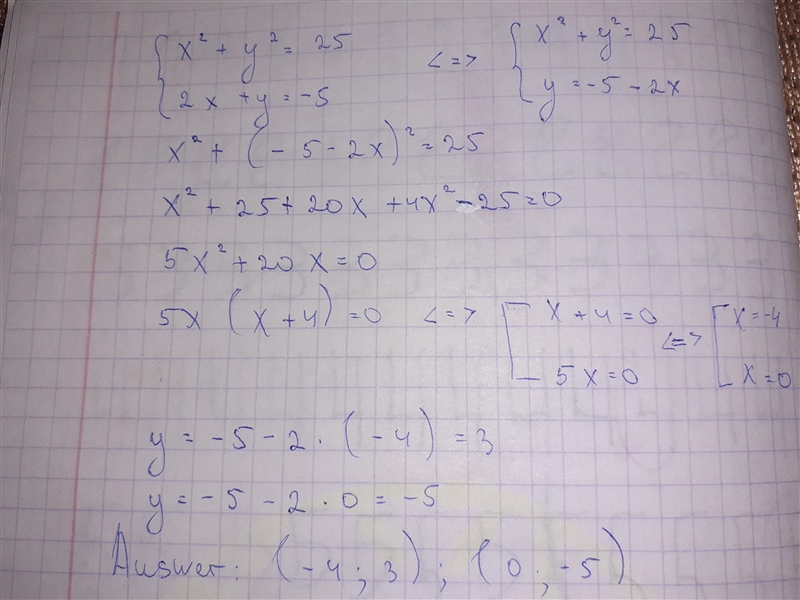 { x² + y² = 25 <=> { x² + y² = 25
{ 2x + y = -5 { y = -5 - 2x
x² + (-5 - 2x)² = 25
x² + 25 + 20x + 4x² - 25 = 0
5x² + 20x = 0
5x (x + 4) = 0 <=> [ x + 4 = 0 <=> [ x = -4
[ 5x = 0 [ x = 0
y = -5 - 2 · (-4) = 3
y = -5 - 2 · 0 = -5
Answer: (-4; 3); (0; -5)